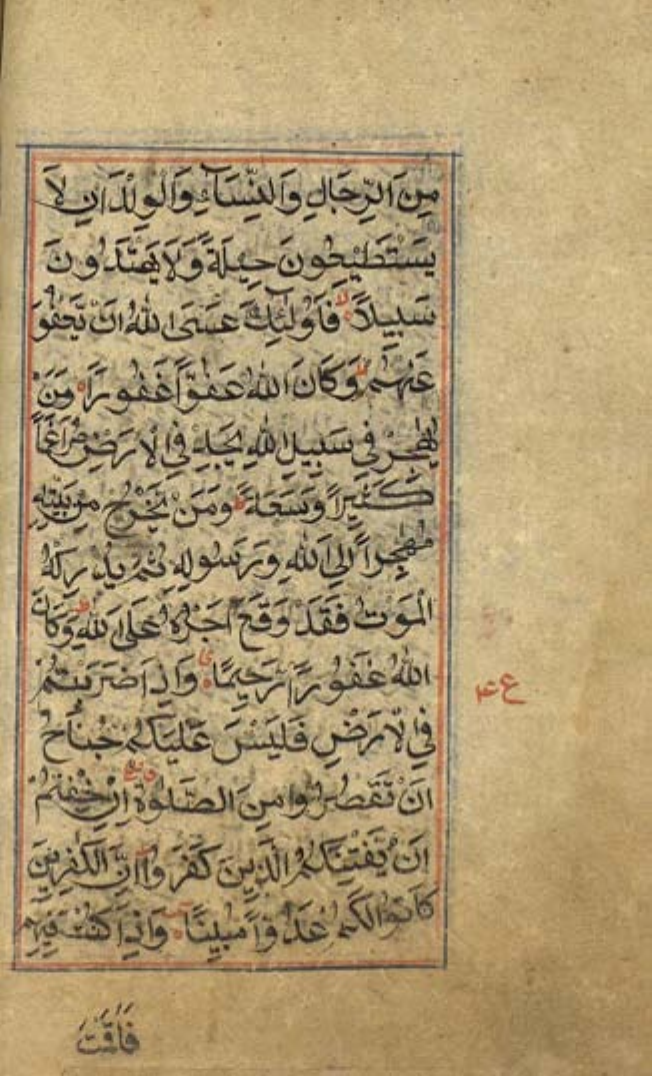 مِنَ الرِّجَالِ وَالنِّسَاءِ وَالْوِلْدَانِ لَا
يَسْتَطِيعُونَ حِيلَةً وَلَا يَهْتَدُونَ
سَبِيلًا لا فَأُولَٰئِكَ عَسَى اللهُ أَنْ يَعْفُوَ
عَنْهُمْ وَكَانَ اللهُ عَفُوًّا غَفُورًا وَمَنْ
يُهَاجِرْ فِي سَبِيلِ اللهِ يَجِدْ فِي الْأَرْضِ مُرَاغَمًا
كَثِيرًا وَسَعَةً وَمَنْ يَخْرُجْ مِنْ بَيْتِهِ
مُهَاجِرًا إِلَى اللهِ وَرَسُولِهِ ثُمَّ يُدْرِكْهُ
الْمَوْتُ فَقَدْ وَقَعَ أَجْرُهُ عَلَى اللهِ ط وَكَانَ
اللهُ غَفُورًا رَحِيمًا وَإِذَا ضَرَبْتُمْ
فِي الْأَرْضِ فَلَيْسَ عَلَيْكُمْ جُنَاحٌ
أَنْ تَقْصُرُوا مِنَ الصَّلٰوةِ إِنْ خِفْتُمْ
أَنْ يَفْتِنَكُمُ الَّذِينَ كَفَرُوا إِنَّ الْكٰفِرِينَ
كَانُوا لَكُمْ عَدُوًّا مُبِينًا وَإِذَا كُنْتَ فِيهِمْ
ع
فَأَقَمْتَ